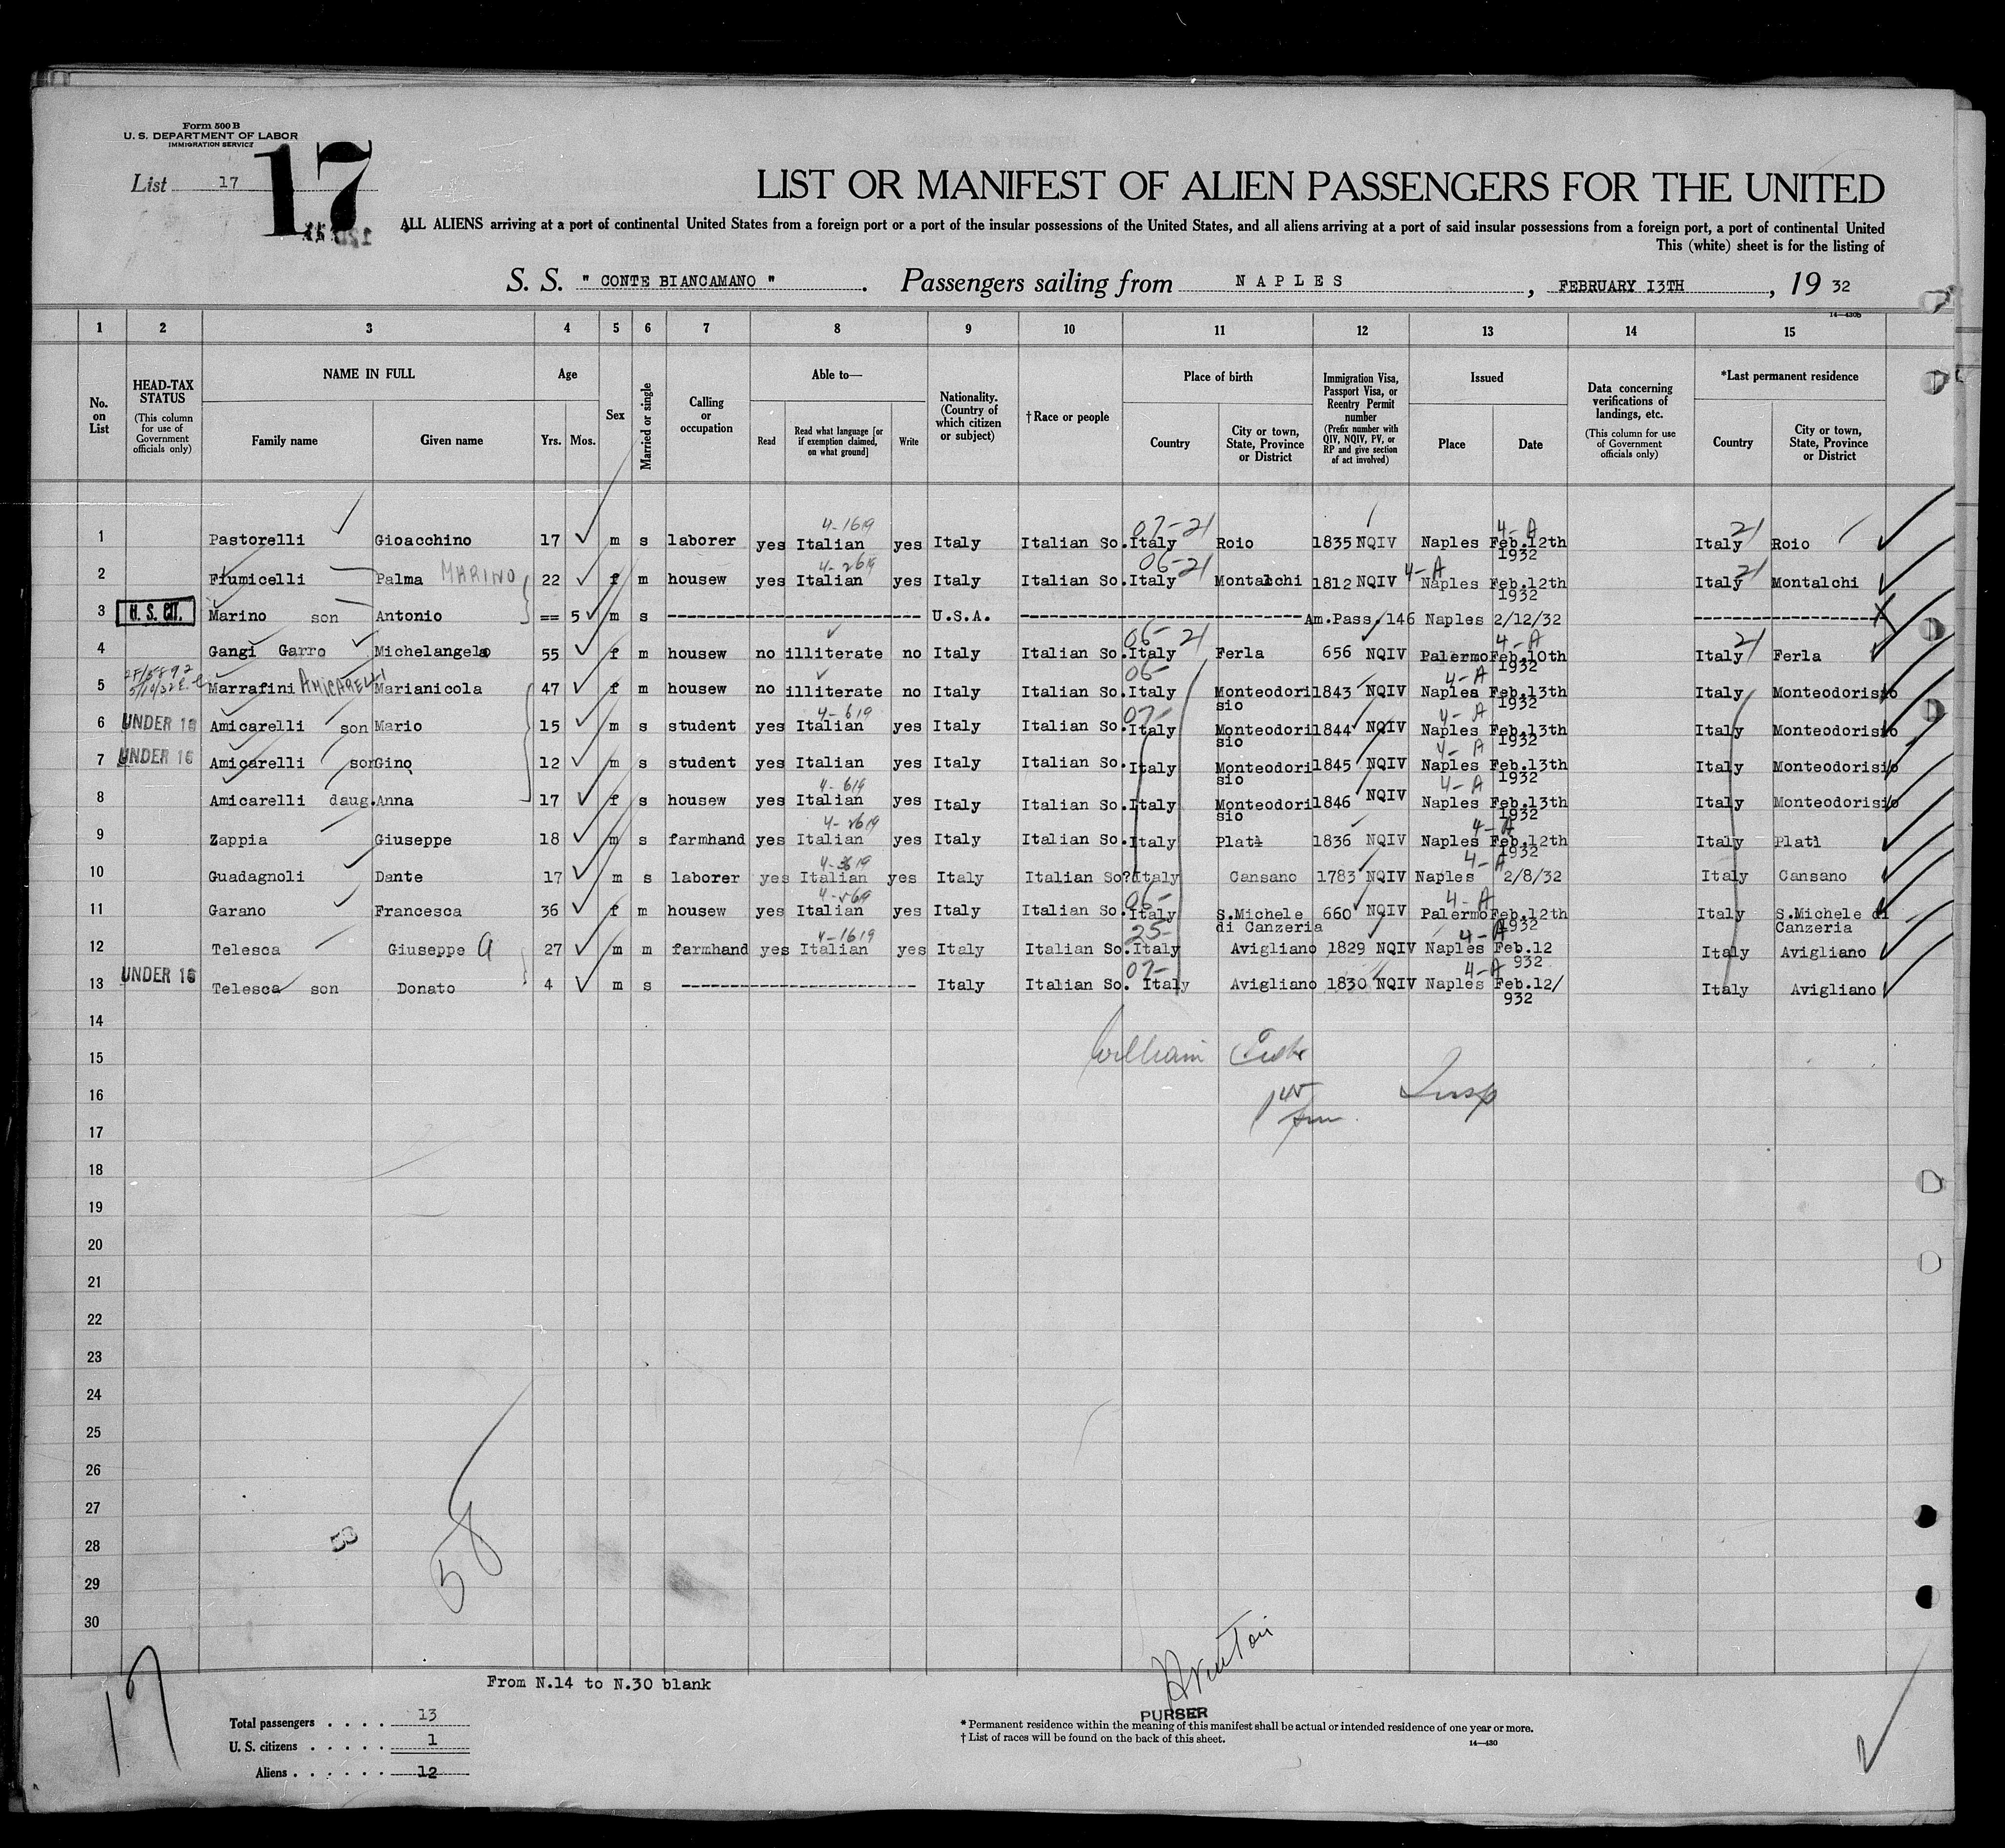 Form 500 B
U. S. DEPARTMENT OF LABOR
IMMIGRATION SERVICE
List 17
17
LIST OR MANIFEST OF ALIEN PASSENGERS FOR THE UNITED
ALL ALIENS arriving at a port of continental United States from a foreign port or a port of the insular possessions of the United States, and all aliens arriving at a port of said insular possessions from a foreign port, a port of continental United
This (white) sheet is for the listing of
S. S. " CONTE BIANCAMANO " . Passengers sailing from N A P L E S , FEBRUARY I3TH , 19 32
14—430b
1 2 3 4 5 6 7 8 9 10 11 12 13 14 15
No. on List
HEAD-TAX STATUS
(This column for use of Government officials only)
NAME IN FULL
Family name Given name
Age
Yrs. Mos.
Sex
Married or single
Calling or occupation
Able to—
Read
Read what language [or if exemption claimed, on what ground]
Write
Nationality. (Country of which citizen or subject)
† Race or people
Place of birth
Country
City or town, State, Province or District
Immigration Visa, Passport Visa, or Reentry Permit number
(Prefix number with QIV, NQIV, PV, or RP and give section of act involved)
Issued
Place Date
Data concerning verifications of landings, etc.
(This column for use of Government officials only)
*Last permanent residence
Country
City or town, State, Province or District
4-1619 07-21 4-A 21
1 Pastorelli Gioacchino 17 m s laborer yes Italian yes Italy Italian So. Italy Roio 1835 NQIV Naples Feb.12th 1932 Italy Roio
4-2619 06-21 4-A 21
2 Fiumicelli Palma MARINO 22 f m housew yes Italian yes Italy Italian So. Italy Montalchi 1812 NQIV Naples Feb.12th 1932 Italy Montalchi
3 U. S. CIT. Marino son Antonio == 5 m s U.S.A. Am.Pass. 146 Naples 2/12/32
06-21 4-A 21
4 Gangi Garro Michelangela 55 f m housew no illiterate no Italy Italian So. Italy Ferla 656 NQIV Palermo Feb.10th 1932 Italy Ferla
06- 4-A
5 Marrafini AMICARELLI Marianicola 47 f m housew no illiterate no Italy Italian So. Italy Monteodorisio 1843 NQIV Naples Feb.13th 1932 Italy Monteodorisio
4-619 07- 4-A
6 UNDER 16 Amicarelli son Mario 15 m s student yes Italian yes Italy Italian So. Italy Monteodorisio 1844 NQIV Naples Feb.13th 1932 Italy Monteodorisio
4-A
7 UNDER 16 Amicarelli son Gino 12 m s student yes Italian yes Italy Italian So. Italy Monteodorisio 1845 NQIV Naples Feb.13th 1932 Italy Monteodorisio
4-619 4-A
8 Amicarelli daug. Anna 17 f s housew yes Italian yes Italy Italian So. Italy Monteodorisio 1846 NQIV Naples Feb.13th 1932 Italy Monteodorisio
4-2619 4-A
9 Zappia Giuseppe 18 m s farmhand yes Italian yes Italy Italian So. Italy Platì 1836 NQIV Naples Feb.12th 1932 Italy Platì
4-3619 4-A
10 Guadagnoli Dante 17 m s laborer yes Italian yes Italy Italian So? Italy Cansano 1783 NQIV Naples 2/8/32 Italy Cansano
06- 4-A
11 Garano Francesca 36 f m housew yes Italian yes Italy Italian So. Italy S.Michele di Canzeria 660 NQIV Palermo Feb.12th 1932 Italy S.Michele di Canzeria
4-1619 25- 4-A
12 Telesca Giuseppe a 27 m m farmhand yes Italian yes Italy Italian So. Italy Avigliano 1829 NQIV Naples Feb.12 932 Italy Avigliano
07- 4-A
13 UNDER 16 Telesca son Donato 4 m s Italy Italian So. Italy Avigliano 1830 NQIV Naples Feb.12/ 932 Italy Avigliano
14
15 William
16 Insp
17
18
19
20
21
22
23
24
25
26
27
28
29
30
58
17
From N.14 to N.30 blank
Total passengers . . . . 13
U. S. citizens . . . . . 1
Aliens . . . . . . 12
PURSER
* Permanent residence within the meaning of this manifest shall be actual or intended residence of one year or more.
† List of races will be found on the back of this sheet.
14—430